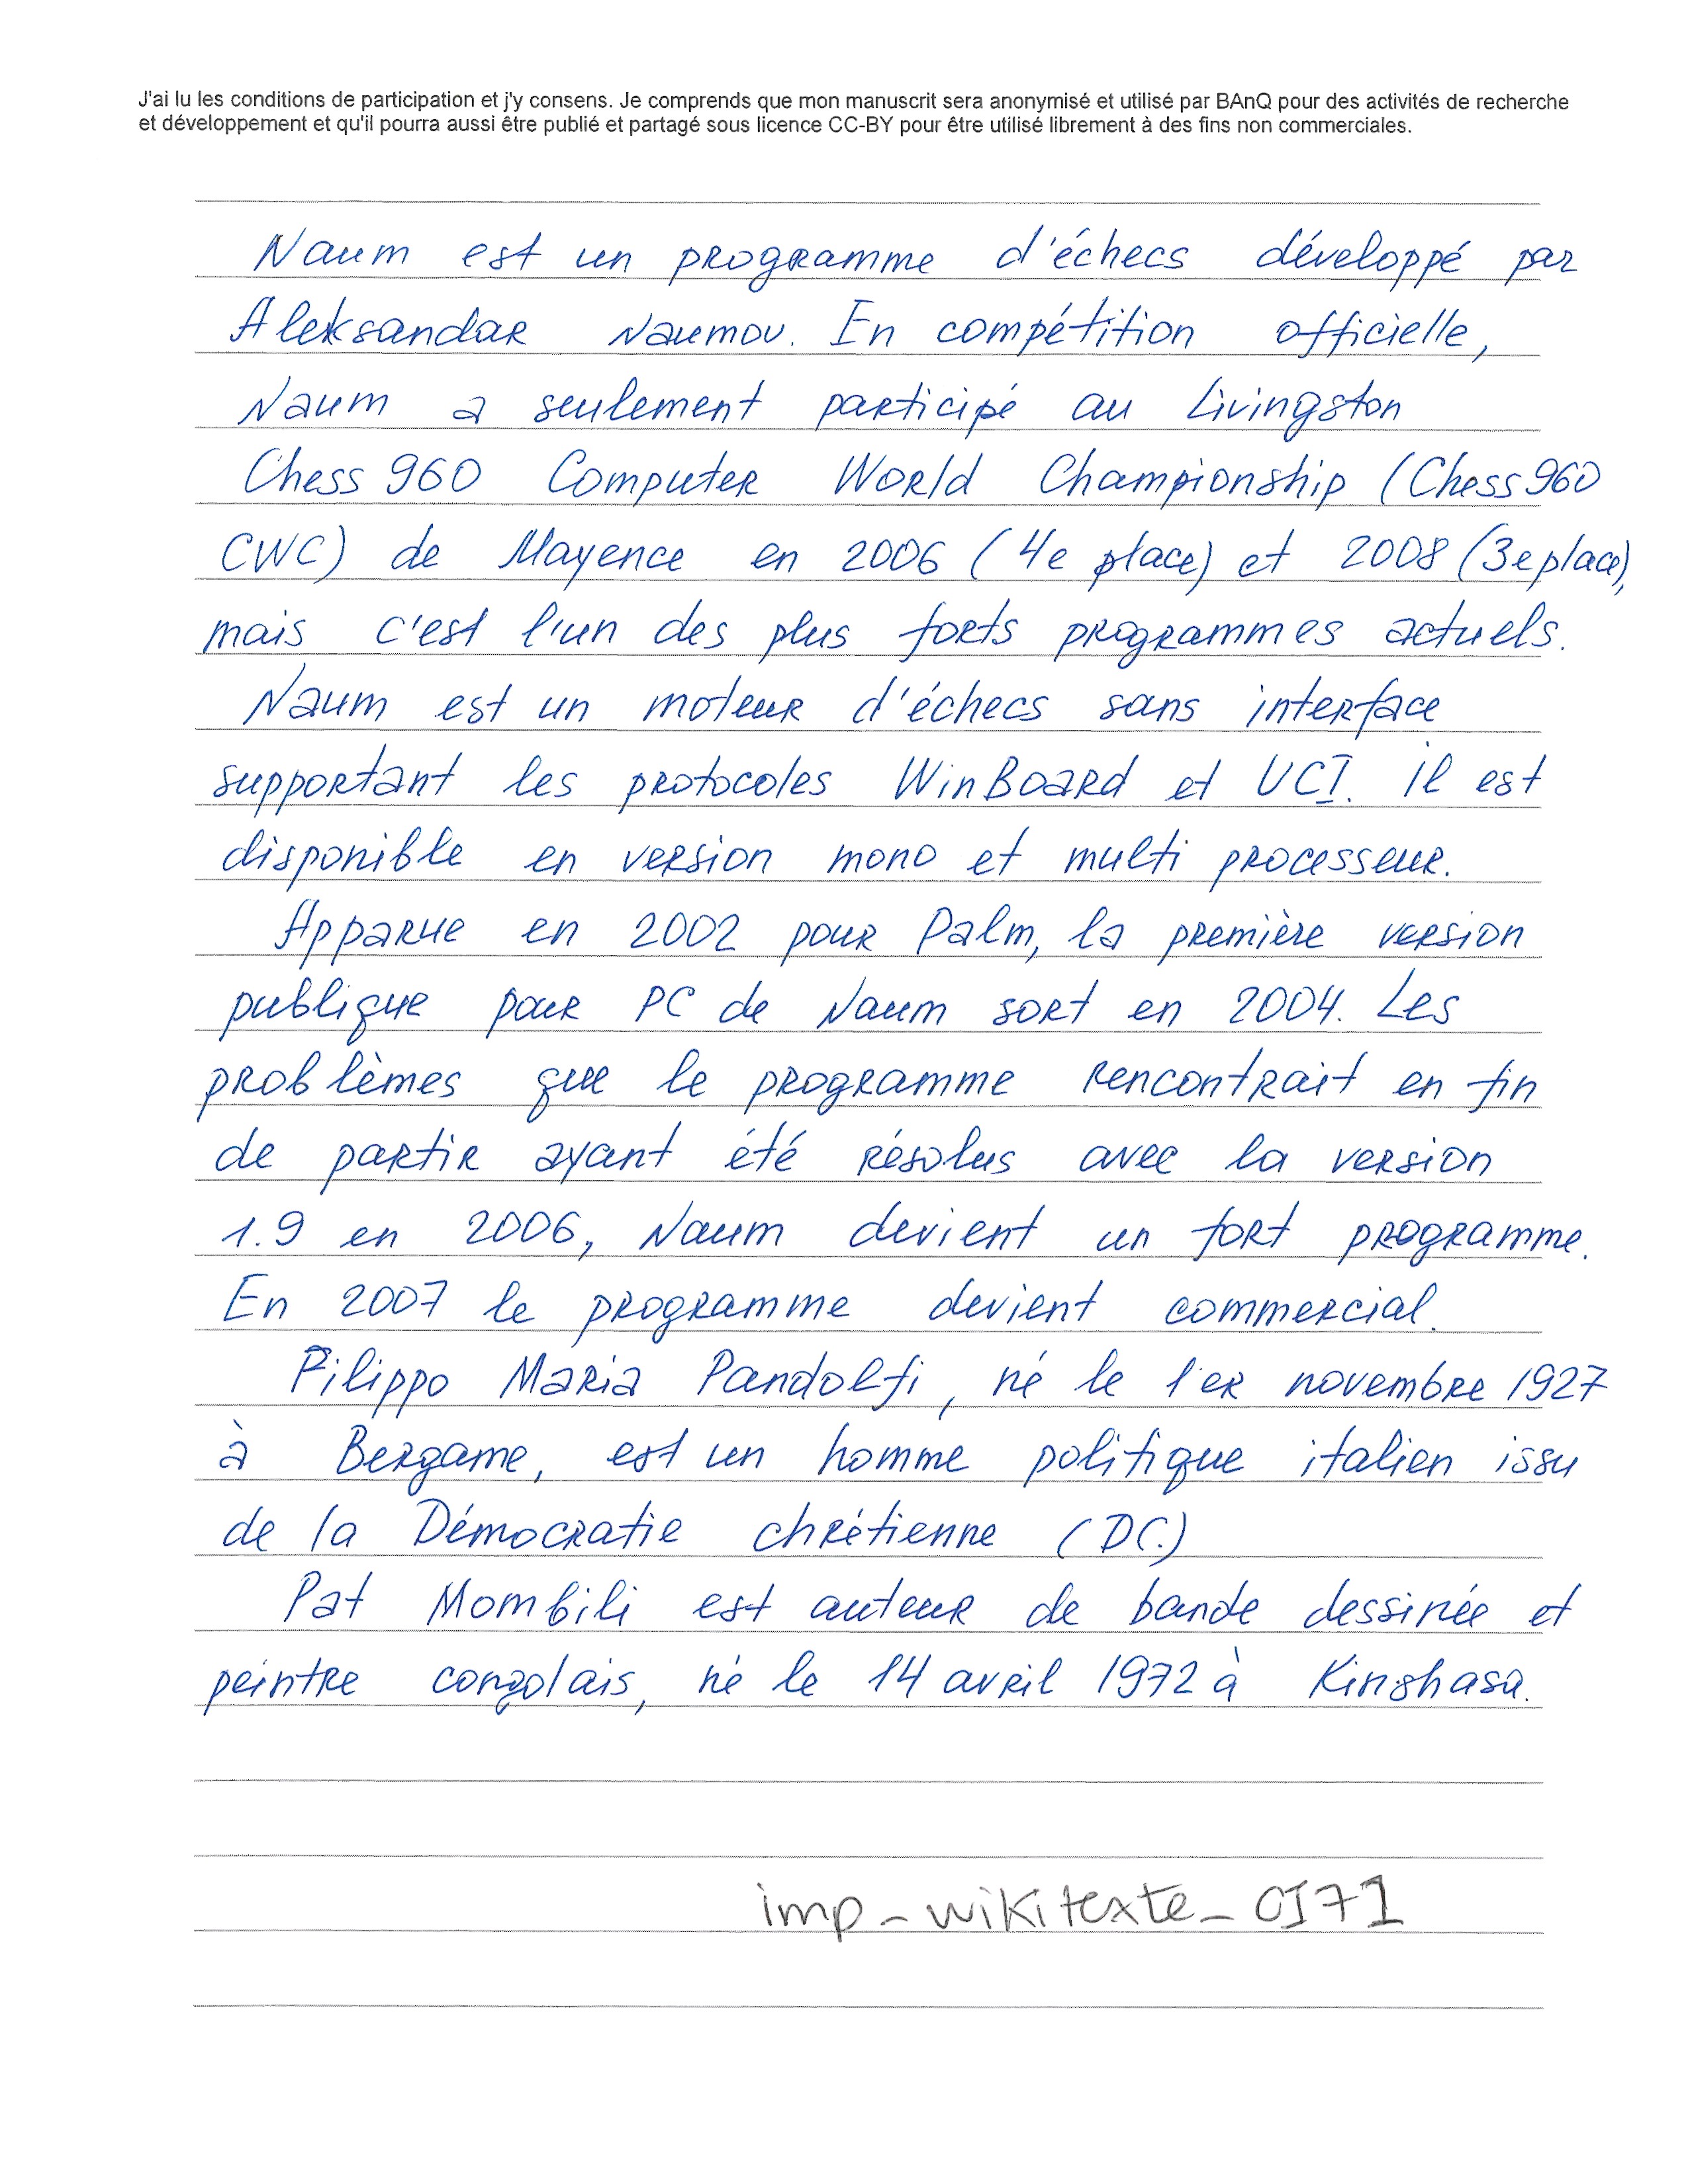 J'ai lu les conditions de participation et j'y consens. Je comprends que mon manuscrit sera anonymisé et utilisé par BAnQ pour des activités de recherche
et développement et qu'il pourra aussi être publié et partagé sous licence CC-BY pour être utilisé librement à des fins non commerciales.
Naum est un programme d'échecs développé par
Aleksandar Naumov. En compétition officielle,
Naum a seulement participé au Livingston
Chess 960 Computer World Championship (Chess 960
CWC) de Mayence en 2006 (4e place) et 2008 (3e place),
mais c'est l'un des plus forts programmes actuels.
Naum est un moteur d'échecs sans interface
supportant les protocoles WinBoard et UCI. il est
disponible en version mono et multi processeur.
Apparue en 2002 pour Palm, la première version
publique pour PC de Naum sort en 2004. Les
problèmes que le programme rencontrait en fin
de partir ayant été résolus avec la version
1.9 en 2006, Naum devient un fort programme.
En 2007 le programme devient commercial.
Filippo Maria Pandolfi, né le 1er novembre 1927
à Bergame, est un homme politique italien issu
de la Démocratie chrétienne (DC.)
Pat Mombili est auteur de bande dessinée et
peintre congolais, né le 14 avril 1972 à Kinshasa.
imp_wikitexte_0171